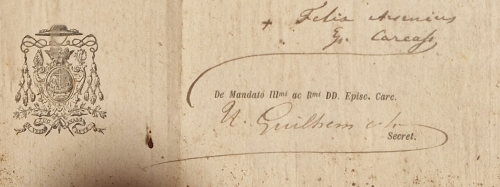 + Felix Arsenius
Ep. Carcass.
De Mandato Illmi ac Rmi DD. Episc. Carc.
Guilhem
Secret.